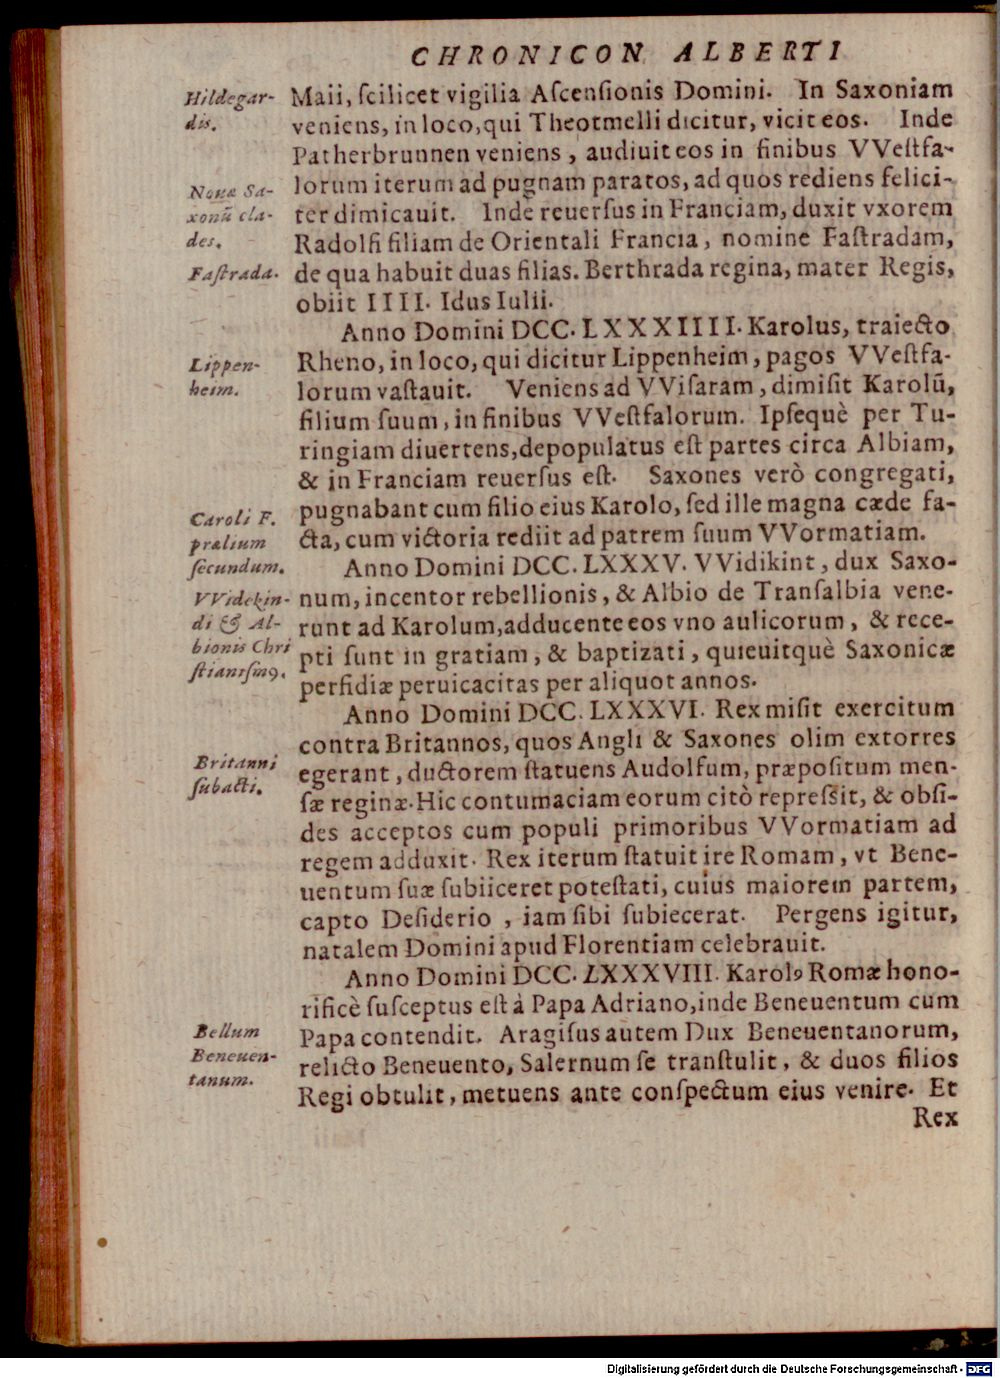 CHRONICON ALBERTI
Hildegar-
dis.
Maii, ſcilicet vigilia Aſcenſionis Domini. In Saxoniam
veniens, in loco, qui Theotmelli dicitur, vicit eos. Inde
Patherbrunnen veniens, audiuit eos in finibus VVeſtfa-
Nouæ Sa-
xonũ cla-
des.
lorum iterum ad pugnam paratos, ad quos rediens felici-
ter dimicauit. Inde reuerſus in Franciam, duxit vxorem
Radolfi filiam de Orientali Francia, nomine Faſtradam,
Faſtrada.
de qua habuit duas filias. Berthrada regina, mater Regis,
obiit IIII. Idus Iulii.
Anno Domini DCC. LXXXIIII. Karolus, traiecto
Lippen-
heim.
Rheno, in loco, qui dicitur Lippenheim, pagos VVeſtfa-
lorum vaſtauit. Veniens ad VViſaram, dimiſit Karolũ,
filium ſuum, in finibus VVeſtfalorum. Ipſequè per Tu-
ringiam diuertens, depopulatus eſt partes circa Albiam,
& in Franciam reuerſus eſt. Saxones verò congregati,
Caroli F.
prælium
ſecundum.
pugnabant cum filio eius Karolo, ſed ille magna cæde fa-
cta, cum victoria rediit ad patrem ſuum VVormatiam.
Anno Domini DCC. LXXXV. VVidikint, dux Saxo-
VVidekin-
di & Al-
bionis Chri
ſtianiſmꝰ.
num, incentor rebellionis, & Albio de Tranſalbia vene-
runt ad Karolum, adducente eos vno aulicorum, & rece-
pti ſunt in gratiam, & baptizati, quieuitquè Saxonicæ
perfidiæ peruicacitas per aliquot annos.
Anno Domini DCC. LXXXVI. Rex miſit exercitum
contra Britannos, quos Angli & Saxones olim extorres
Britanni
ſubacti.
egerant, ductorem ſtatuens Audolfum, præpoſitum men-
ſæ reginæ. Hic contumaciam eorum citò repreſsit, & obſi-
des acceptos cum populi primoribus VVormatiam ad
regem adduxit. Rex iterum ſtatuit ire Romam, vt Bene-
uentum ſuæ ſubiiceret poteſtati, cuius maiorem partem,
capto Deſiderio, iam ſibi ſubiecerat. Pergens igitur,
natalem Domini apud Florentiam celebrauit.
Anno Domini DCC. LXXXVIII. Karolꝰ Romæ hono-
rificè ſuſceptus eſt à Papa Adriano, inde Beneuentum cum
Bellum
Beneuen-
tanum.
Papa contendit. Aragiſus autem Dux Beneuentanorum,
relicto Beneuento, Salernum ſe tranſtulit, & duos filios
Regi obtulit, metuens ante conſpectum eius venire. Et
Rex
Digitalisierung gefördert durch die Deutsche Forschungsgemeinschaft - DFG